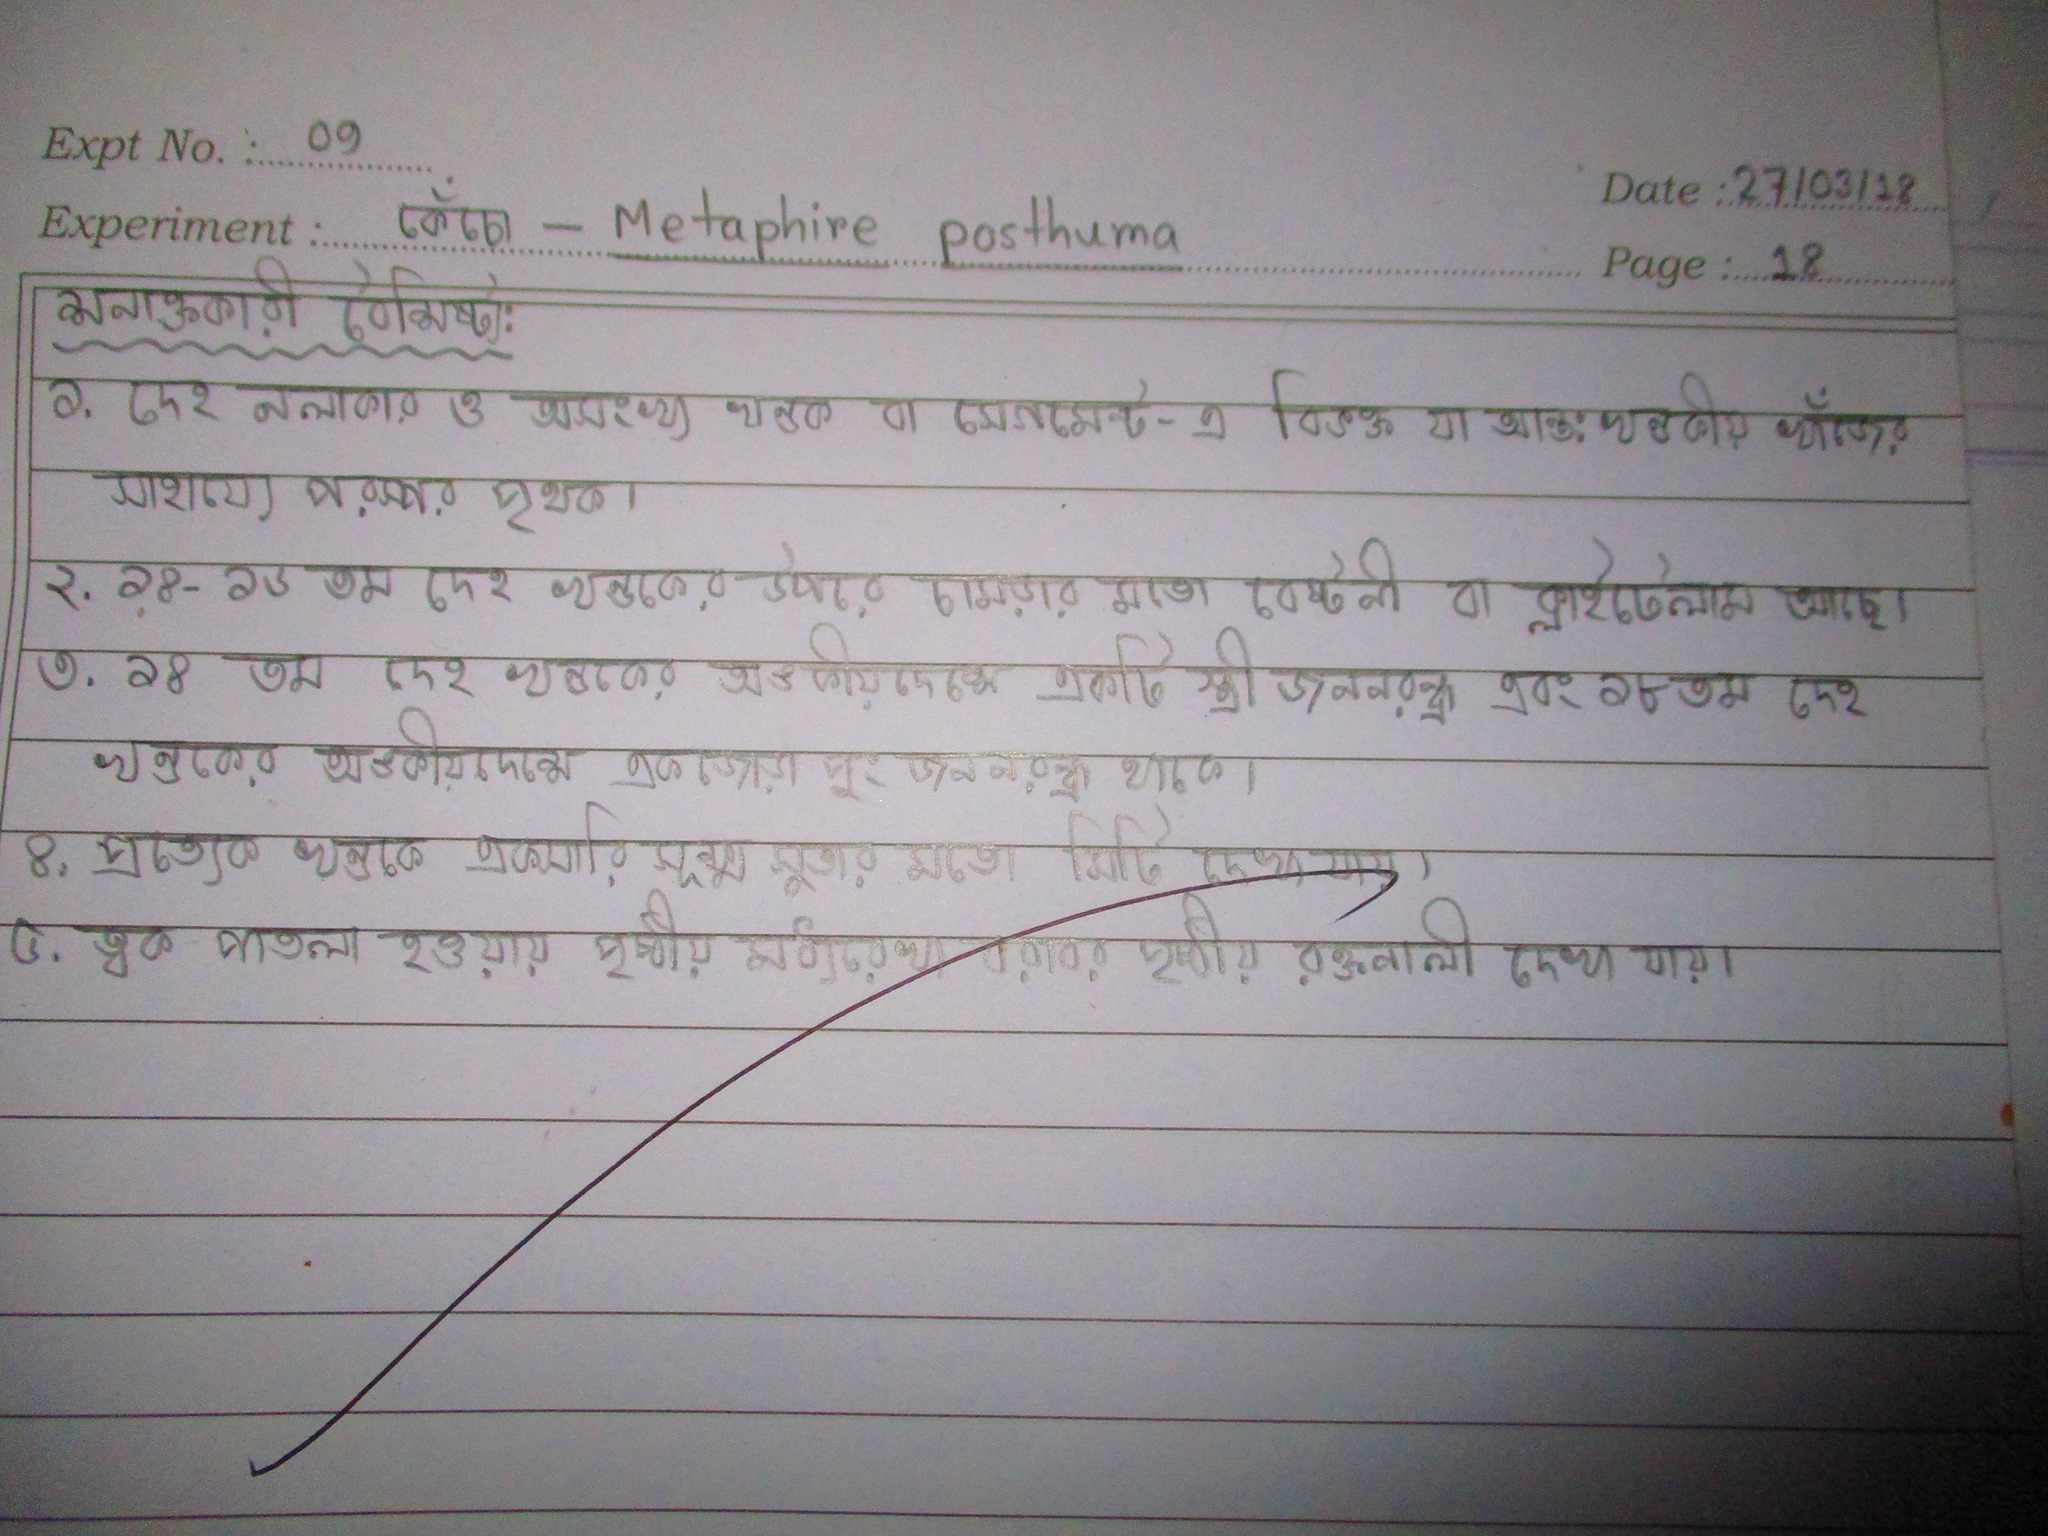 Expt No. : 09
Date : 27/03/18
Experiment : কেঁচো - Metaphire posthuma
Page : 18
শনাক্তকারী বৈশিষ্ট্য:
১. দেহ নলাকার ও অসংখ্য খন্ডক বা সেগমেন্ট-এ বিভক্ত যা আন্তঃখন্ডকীয় খাঁজের
সাহায্যে পরস্পর পৃথক।
২. ১৪-১৬ তম দেহ খন্ডকের উপরে চামড়ার মতো বেষ্টনী বা ক্লাইটেলাম আছে।
৩. ১৪ তম দেহ খন্ডকের অঙ্কীয়দেশে একটি স্ত্রী জননরন্ধ্র এবং ১৮তম দেহ
খন্ডকের অঙ্কীয়দেশে একজোড়া পুং জননরন্ধ্র থাকে।
৪. প্রত্যেক খন্ডকে একসারি সূক্ষ্ম সুতার মতো সিটি দেখা যায়।
৫. ত্বক পাতলা হওয়ায় পৃষ্ঠীয় মধ্যরেখা বরাবর পৃষ্ঠীয় রক্তনালী দেখা যায়।